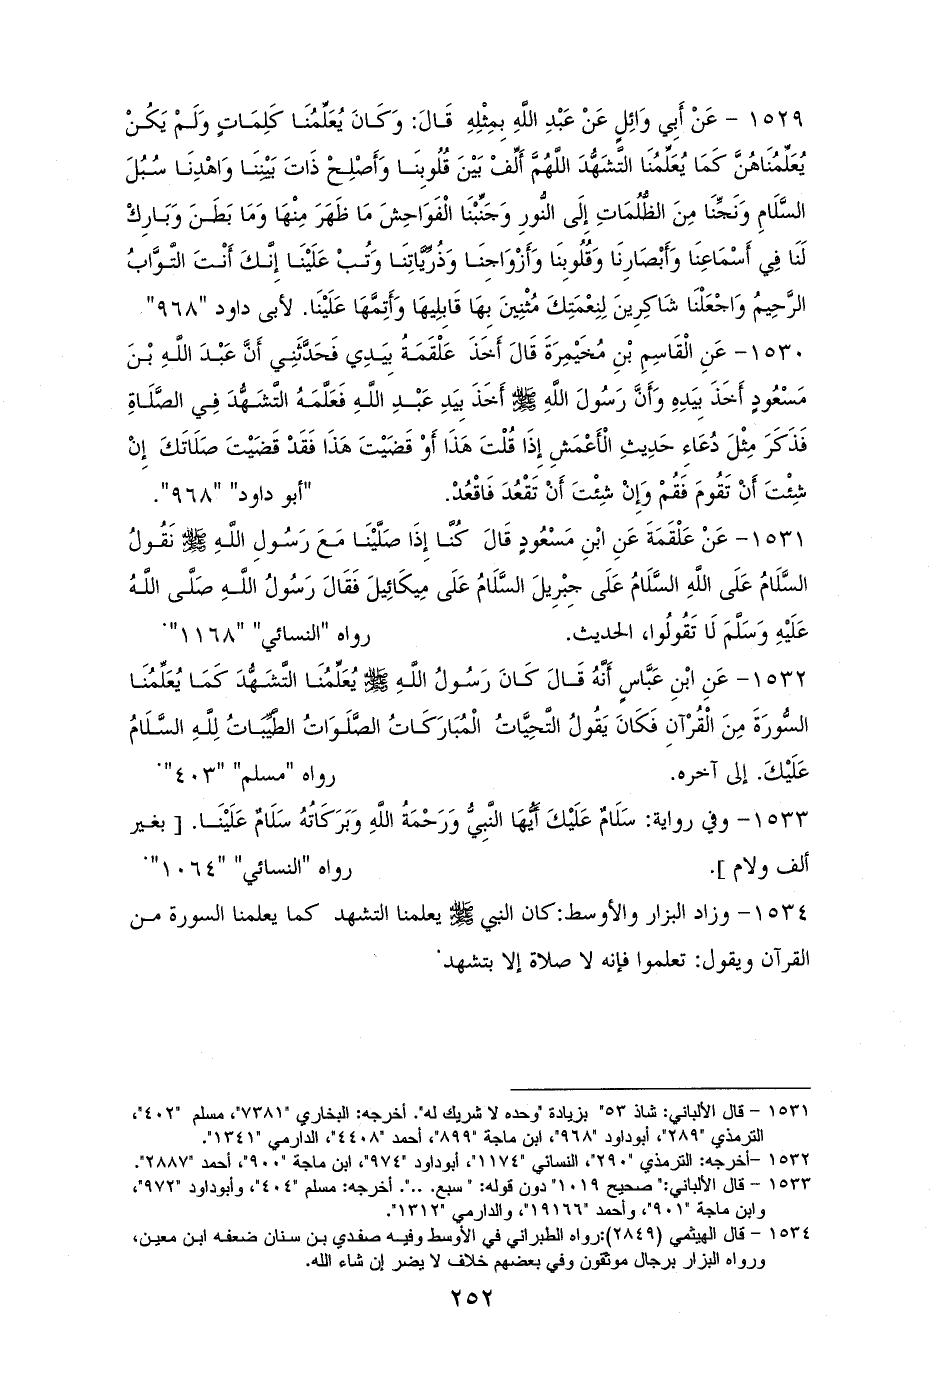 ١٥٢٩ - عَنْ أَبِي وَائِلٍ عَنْ عَبْدِ اللَّهِ بِمِثْلِهِ قَالَ: وَكَانَ يُعَلِّمُنَا كَلِمَاتٍ وَلَمْ يَكُنْ
يُعَلِّمُنَاهُنَّ كَمَا يُعَلِّمُنَا التَّشَهُّدَ اللَّهُمَّ أَلِّفْ بَيْنَ قُلُوبِنَا وَأَصْلِحْ ذَاتَ بَيْنِنَا وَاهْدِنَا سُبُلَ
السَّلَامِ وَنَجِّنَا مِنَ الظُّلُمَاتِ إِلَى النُّورِ وَجَنِّبْنَا الْفَوَاحِشَ مَا ظَهَرَ مِنْهَا وَمَا بَطَنَ وَبَارِكْ
لَنَا فِي أَسْمَاعِنَا وَأَبْصَارِنَا وَقُلُوبِنَا وَأَزْوَاجِنَا وَذُرِّيَّاتِنَا وَتُبْ عَلَيْنَا إِنَّكَ أَنْتَ التَّوَّابُ
الرَّحِيمُ وَاجْعَلْنَا شَاكِرِينَ لِنِعْمَتِكَ مُثْنِينَ بِهَا قَابِلِيهَا وَأَتِمَّهَا عَلَيْنَا. لأبى داود "٩٦٨"
١٥٣٠- عَنِ الْقَاسِمِ بْنِ مُخَيْمِرَةَ قَالَ أَخَذَ عَلْقَمَةُ بِيَدِي فَحَدَّثَنِي أَنَّ عَبْدَ اللَّهِ بْنَ
مَسْعُودٍ أَخَذَ بِيَدِهِ وَأَنَّ رَسُولَ اللَّهِ ﷺ أَخَذَ بِيَدِ عَبْدِ اللَّهِ فَعَلَّمَهُ التَّشَهُّدَ فِي الصَّلَاةِ
فَذَكَرَ مِثْلَ دُعَاءِ حَدِيثِ الْأَعْمَشِ إِذَا قُلْتَ هَذَا أَوْ قَضَيْتَ هَذَا فَقَدْ قَضَيْتَ صَلَاتَكَ إِنْ
شِئْتَ أَنْ تَقُومَ فَقُمْ وَإِنْ شِئْتَ أَنْ تَقْعُدَ فَاقْعُدْ. "أبو داود" "٩٦٨".
١٥٣١- عَنْ عَلْقَمَةَ عَنِ ابْنِ مَسْعُودٍ قَالَ كُنَّا إِذَا صَلَّيْنَا مَعَ رَسُولِ اللَّهِ ﷺ نَقُولُ
السَّلَامُ عَلَى اللَّهِ السَّلَامُ عَلَى جِبْرِيلَ السَّلَامُ عَلَى مِيكَائِيلَ فَقَالَ رَسُولُ اللَّهِ صَلَّى اللَّهُ
عَلَيْهِ وَسَلَّمَ لَا تَقُولُوا، الحديث. رواه "النسائي" "١١٦٨".
١٥٣٢- عَنِ ابْنِ عَبَّاسٍ أَنَّهُ قَالَ كَانَ رَسُولُ اللَّهِ ﷺ يُعَلِّمُنَا التَّشَهُّدَ كَمَا يُعَلِّمُنَا
السُّورَةَ مِنَ الْقُرْآنِ فَكَانَ يَقُولُ التَّحِيَّاتُ الْمُبَارَكَاتُ الصَّلَوَاتُ الطَّيِّبَاتُ لِلَّهِ السَّلَامُ
عَلَيْكَ. إلى آخره. رواه "مسلم" "٤٠٣".
١٥٣٣- وفي رواية: سَلَامٌ عَلَيْكَ أَيُّهَا النَّبِيُّ وَرَحْمَةُ اللَّهِ وَبَرَكَاتُهُ سَلَامٌ عَلَيْنَا. [ بغير
ألف ولام ]. رواه "النسائي" "١٠٦٤".
١٥٣٤- وزاد البزار والأوسط: كان النبي ﷺ يعلمنا التشهد كما يعلمنا السورة من
القرآن ويقول: تعلموا فإنه لا صلاة إلا بتشهد.
١٥٣١ - قال الألباني: شاذ "٥٣ بزيادة "وحده لا شريك له". أخرجه: البخاري "٧٣٨١"، مسلم "٤٠٢"،
الترمذي "٢٨٩"، أبوداود "٩٦٨"، ابن ماجة "٨٩٩"، أحمد "٤٤٠٨"، الدارمي "١٣٤١".
١٥٣٢ -أخرجه: الترمذي "٢٩٠"، النسائي "١١٧٤"، أبوداود "٩٧٤"، ابن ماجة "٩٠٠"، أحمد "٢٨٨٧".
١٥٣٣ - قال الألباني: "صحيح ١٠١٩" دون قوله: " سبع. ..". أخرجه: مسلم "٤٠٤"، وأبوداود "٩٧٢"،
وابن ماجة "٩٠١"، وأحمد "١٩١٦٦"، والدارمي "١٣١٢".
١٥٣٤ - قال الهيثمي (٢٨٤٩):رواه الطبراني في الأوسط وفيه صفدي بن سنان ضعفه ابن معين،
ورواه البزار برجال موثقون وفي بعضهم خلاف لا يضر إن شاء الله.
٢٥٢